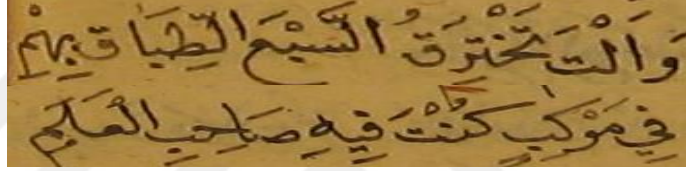 وَالْتَ تَخْتَرِقُ السَّبْعَ الطِّبَاقَ بِهِمْ
فِي مَوْكِبٍ كُنْتَ فِيهِ صَاحِبِ الْعَلَمِ